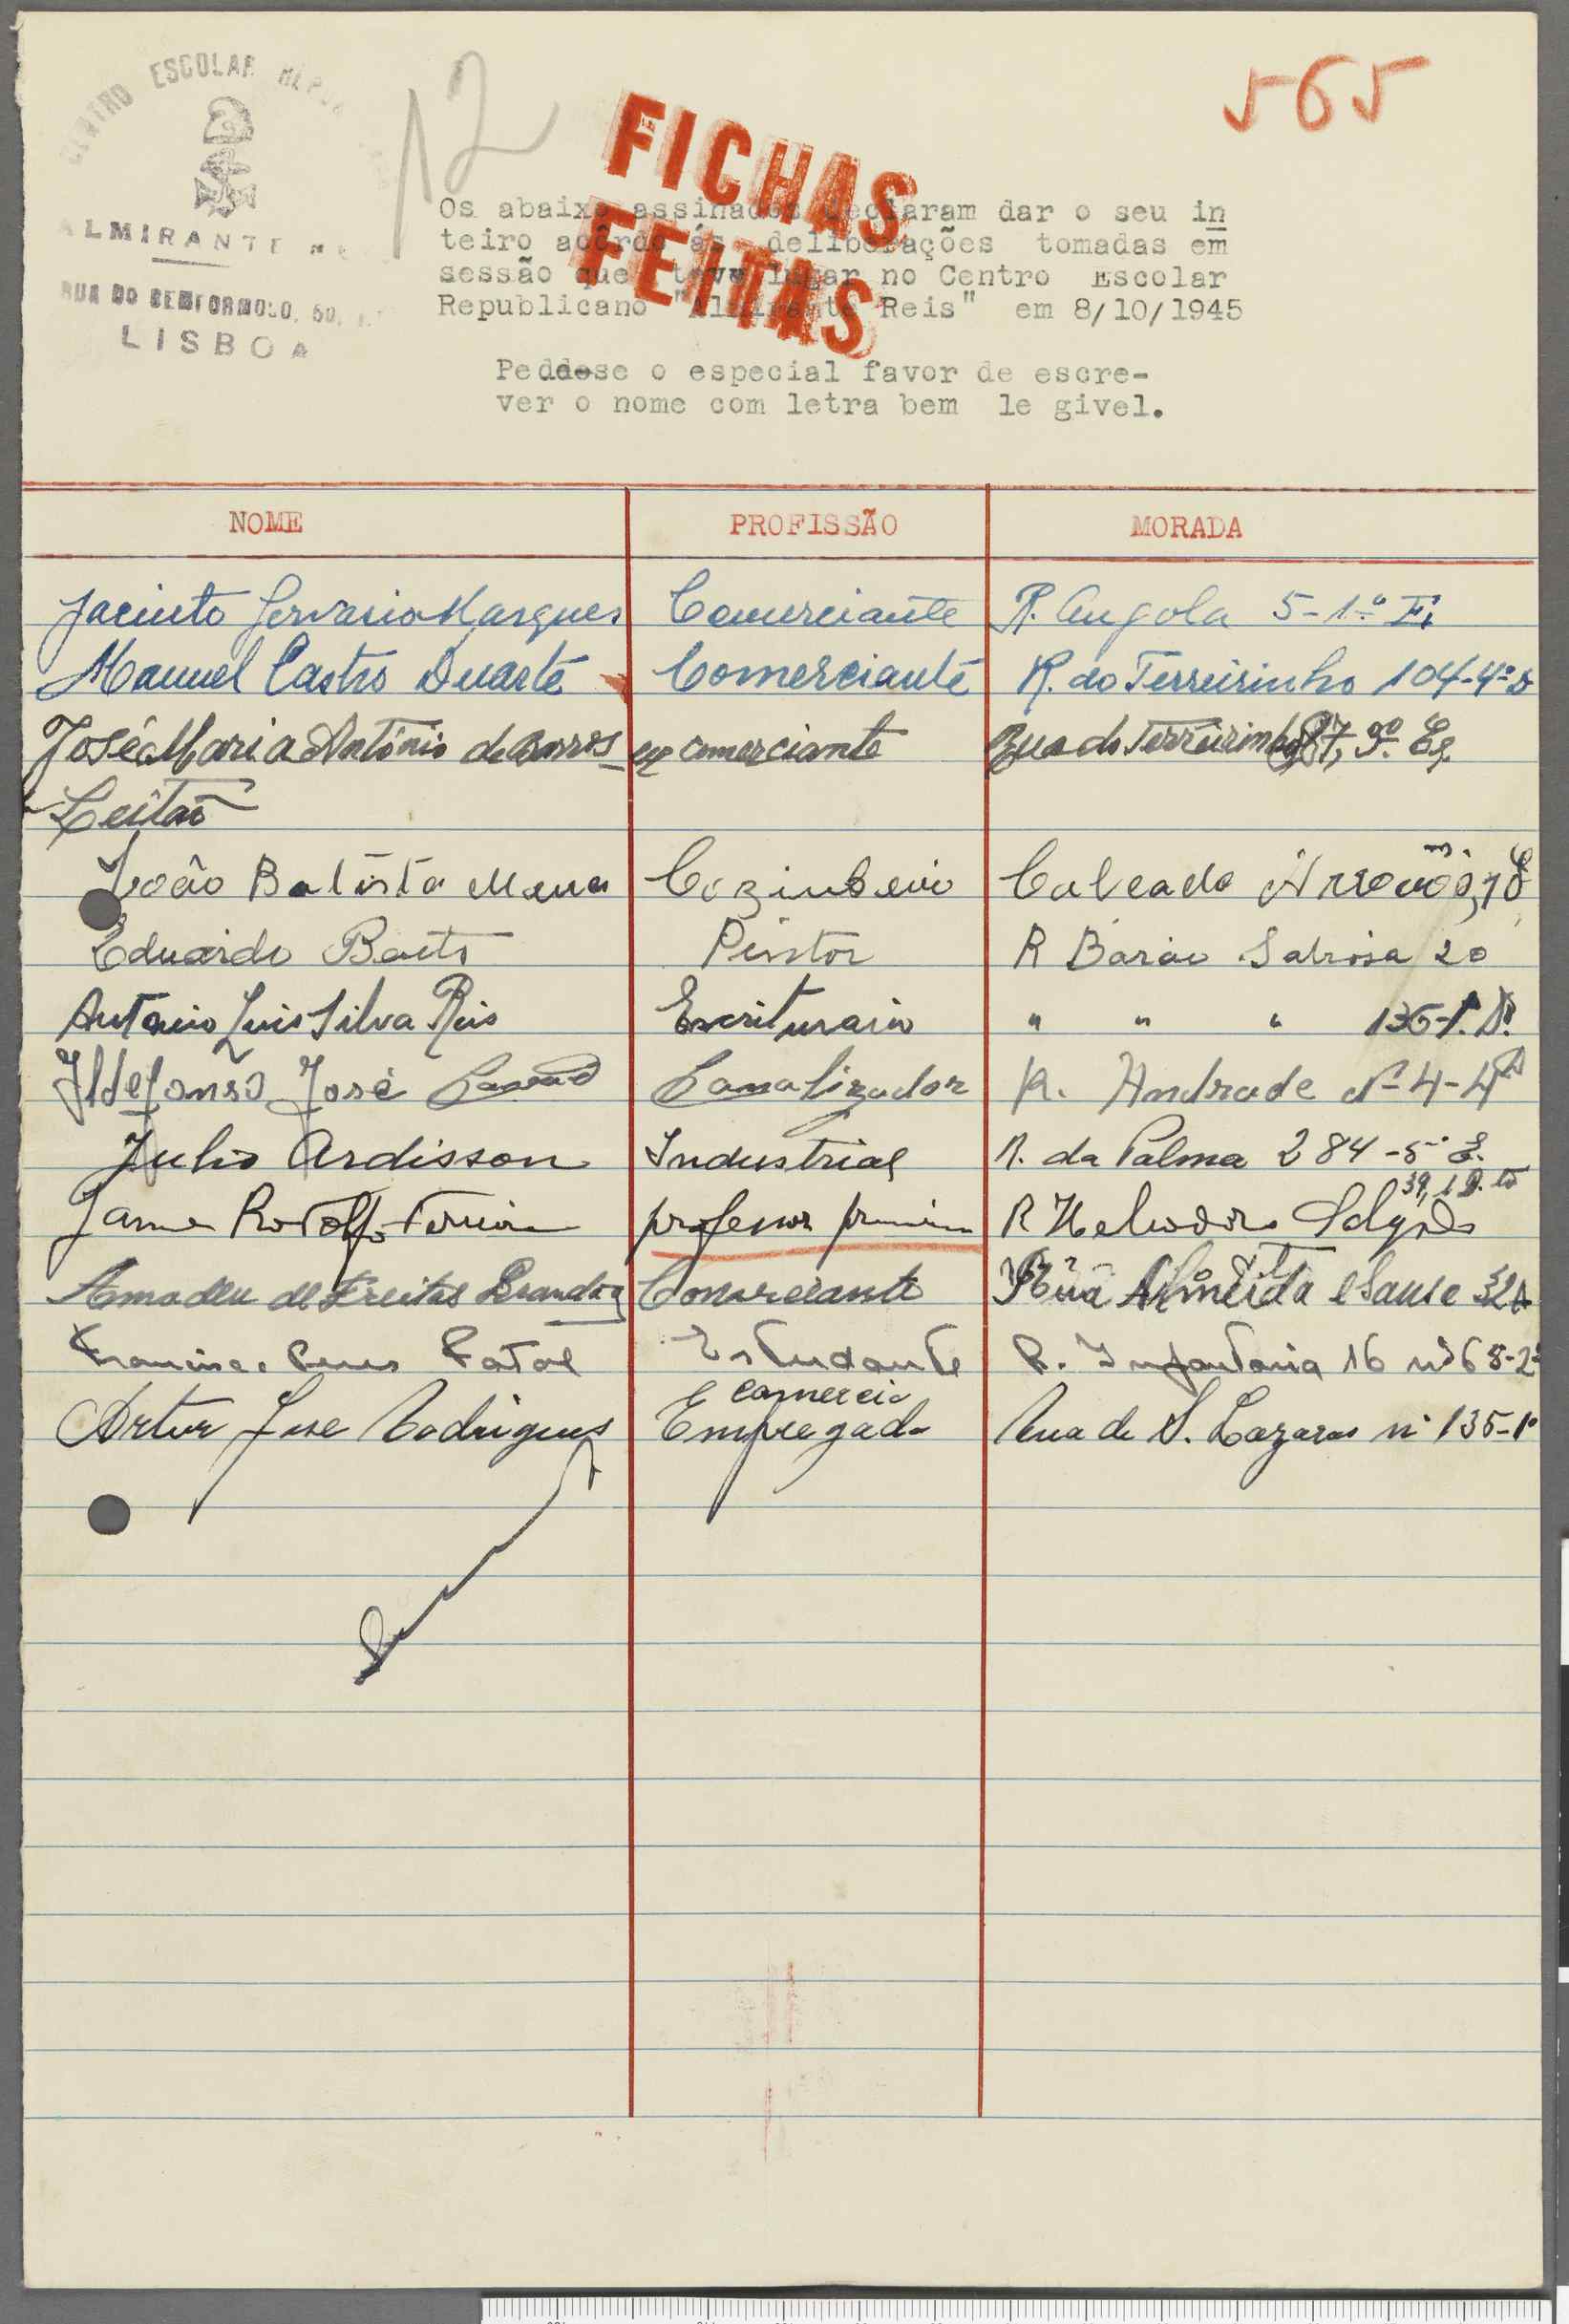 CENTRO ESCOLAR
ALMIRANTE
RUA DO BEMFORMOSO, 50,
LISBOA
12
565
FICHAS
FEITAS
Os abaixo assinados declaram dar o seu in
teiro acôrdo ás deliberações tomadas em
sessão que teve lugar no Centro Escolar
Republicano "Almirante Reis" em 8/10/1945
Peddese o especial favor de escre-
ver o nome com letra bem le givel.
NOME PROFISSÃO MORADA
Jacinto Gervasio Marques Comerciante R. Angola 5-1º E.
Manuel Castro Duarte Comerciante R. do Terreirinho 104-4º D
José Maria António de Barros comerciante Rua do Terreirinho 87, Eq.
Leitão
João Batista Cozinheiro Calcada Arroios, 18
Eduardo Pintor R Barão Sabrosa 20
Antonio Luis Silva Reis Escriturario " " " 136-1º D.
Ildefonso José Canalizador R. Andrade Nº 4-4º
Julio Ardisson Industrial R. da Palma 284-5º E.
Jaime Rodolfo Ferreira professor primário R Heliodoro Salgado 39, 1 D.to
Amadeu de Freitas Brandão Comerciante Rua Almeida e Sousa 32A
Estudante R. Infantaria 16 nº 68-2º
Artur Jose Rodrigues Empregado comercio Rua de S. Lazaros nº 135-1º